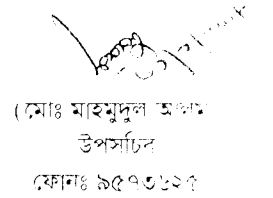 (মোঃ মাহমুদুল আলম
উপসচিব
ফোনঃ ৯৫৭৩৬২৫